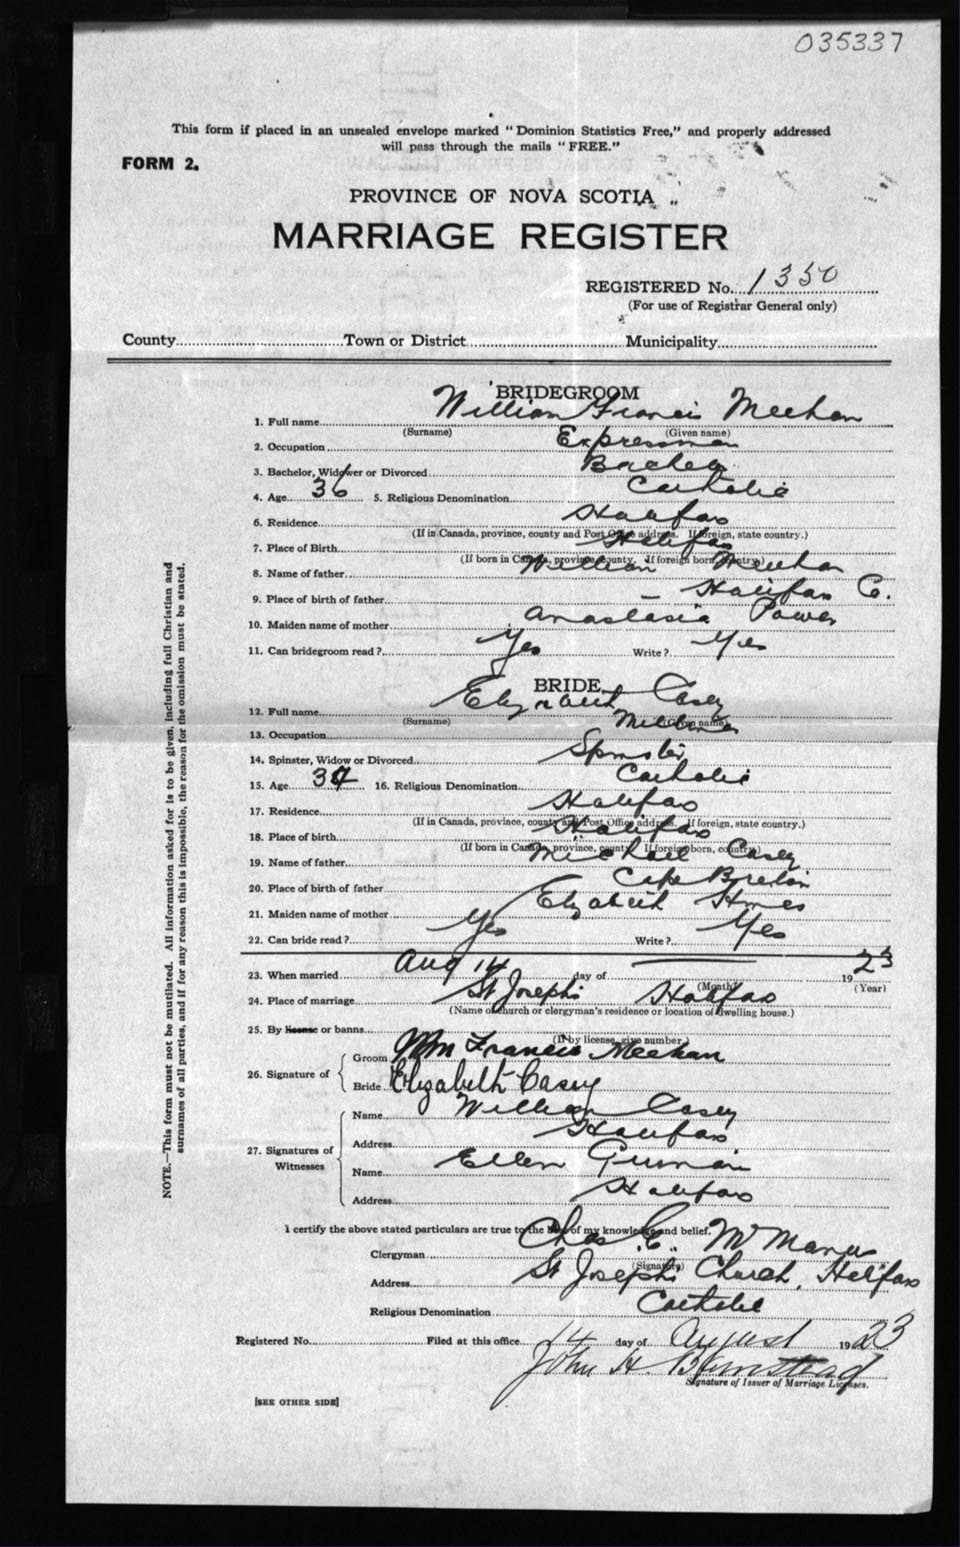 035337
This form if placed in an unsealed envelope marked " Dominion Statistics Free," and properly addressed
will pass through the mails " FREE."
FORM 2.
PROVINCE OF NOVA SCOTIA
MARRIAGE REGISTER
REGISTERED No. 1350
(For use of Registrar General only)
County Town or District Municipality
BRIDEGROOM
1. Full name William Francis Meehan
(Surname) (Given name)
2. Occupation Expressman
3. Bachelor, Widower or Divorced Bachelor
4. Age 36 5. Religious Denomination Catholic
6. Residence Halifax
(If in Canada, province, county and Post Office address. If foreign, state country.)
7. Place of Birth Halifax
(If born in Canada, province, county. If foreign born, country)
8. Name of father William Meehan
9. Place of birth of father Halifax Co.
10. Maiden name of mother Anastasia Power
11. Can bridegroom read ? Yes Write ? Yes
BRIDE
12. Full name Elizabeth Casey
(Surname) (Given name)
13. Occupation
14. Spinster, Widow or Divorced Spinster
15. Age 34 16. Religious Denomination Catholic
17. Residence Halifax
(If in Canada, province, county and Post Office address. If foreign, state country.)
18. Place of birth Halifax
(If born in Canada, province, county. If foreign born, country)
19. Name of father Michael Casey
20. Place of birth of father Cape Breton
21. Maiden name of mother Elizabeth
22. Can bride read ? Yes Write ? Yes
23. When married Aug 14 day of 1923
(Month) (Year)
24. Place of marriage St Josephs Halifax
(Name of church or clergyman's residence or location of dwelling house.)
25. By license or banns
(If by license, give number.)
26. Signature of
Groom Wm Francis Meehan
Bride Elizabeth Casey
27. Signatures of Witnesses
Name William Casey
Address Halifax
Name Ellen
Address Halifax
I certify the above stated particulars are true to the best of my knowledge and belief.
Clergyman Chas E. McManus
(Signature)
Address St Josephs Church, Halifax
Religious Denomination Catholic
Registered No. Filed at this office 14 day of August 1923
John H.
Signature of Issuer of Marriage Licenses.
[SEE OTHER SIDE]
NOTE.—This form must not be mutilated. All information asked for is to be given, including full Christian and
surnames of all parties, and if for any reason this is impossible, the reason for the omission must be stated.